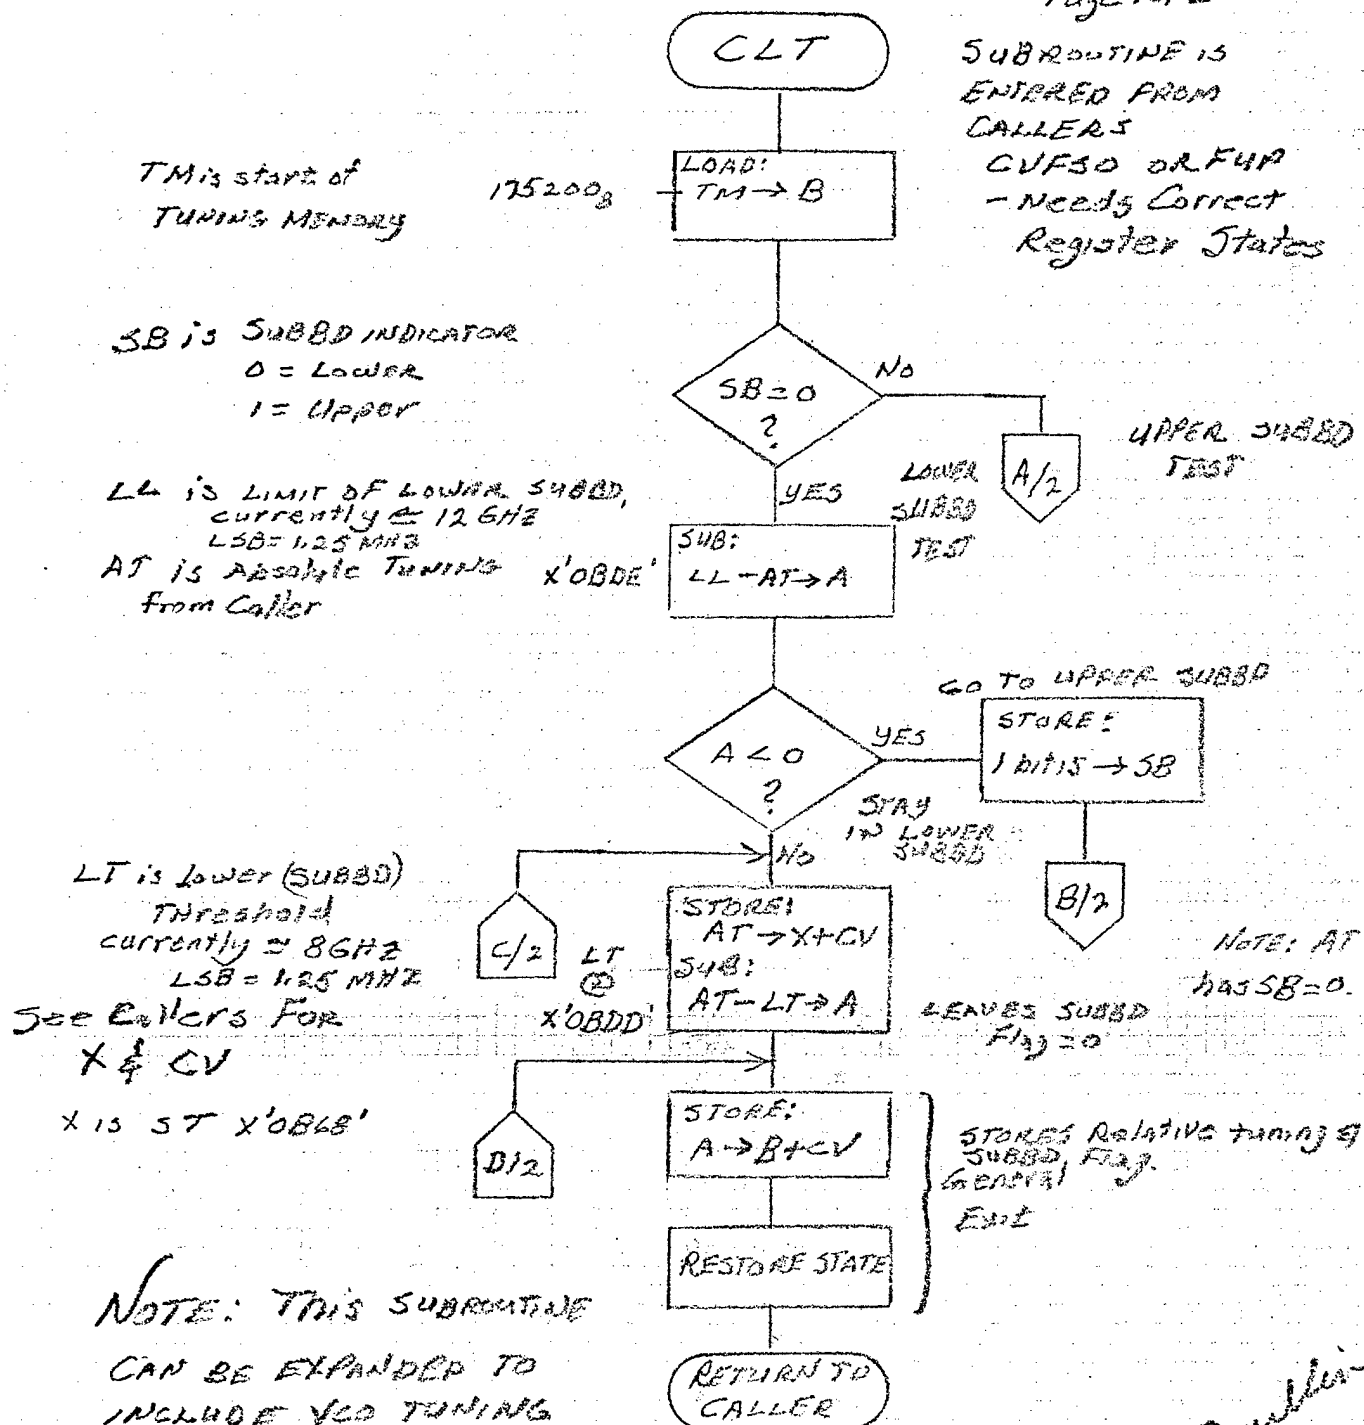 CLT
SUBROUTINE IS
ENTERED FROM
CALLERS
CVFSO OR F4P
- Needs Correct
Register States
TM is start of
TUNING MEMORY
175200₈
LOAD:
TM → B
SB is SUBBD INDICATOR
0 = Lower
1 = Upper
SB = 0
?
NO
A/2
UPPER SUBBD
TEST
YES
LOWER
SUBBD
TEST
LL is LIMIT OF LOWER SUBBD,
currently ≅ 12 GHZ
LSB = 1.25 MHZ
AT is Absolute TUNING
from Caller
X'0BDE'
SUB:
LL - AT → A
A < 0
?
YES
GO TO UPPER SUBBD
STORE:
1 bit 15 → SB
B/2
STAY
IN LOWER
SUBBD
NO
LT is Lower (SUBBD)
THreshold
currently ≅ 8 GHZ
LSB = 1.25 MHZ
See Callers For
X & CV
X is ST X'0B68'
C/2
LT
@
X'0BDD'
STORE:
AT → X+CV
SUB:
AT - LT → A
LEAVES SUBBD
Flag = 0
NOTE: AT
has SB = 0.
D/2
STORE:
A → B+CV
STORES Relative tuning &
SUBBD Flag.
General
Exit
RESTORE STATE
NOTE: This SUBROUTINE
CAN BE EXPANDED TO
INCLUDE VCO TUNING
RETURN TO
CALLER